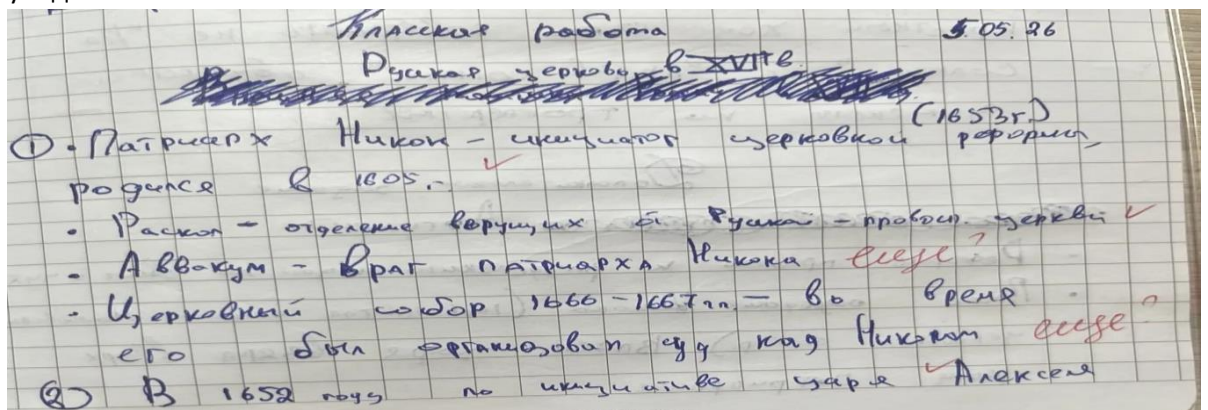 Классная работа 5.05.26
Русская церковь в XVII в.
(1653г.)
① · Патриарх Никон - инициатор церковной реформы,
родился в 1605.-
· Раскол - отделение верущих от Русской - правосл. церкви
· Аввакум - враг патриарха Никона еще?
· Церковный собор 1666-1667 гг. - во время
его был организован суд над Никоном еще?
② В 1652 году по инициативе царя Алексея